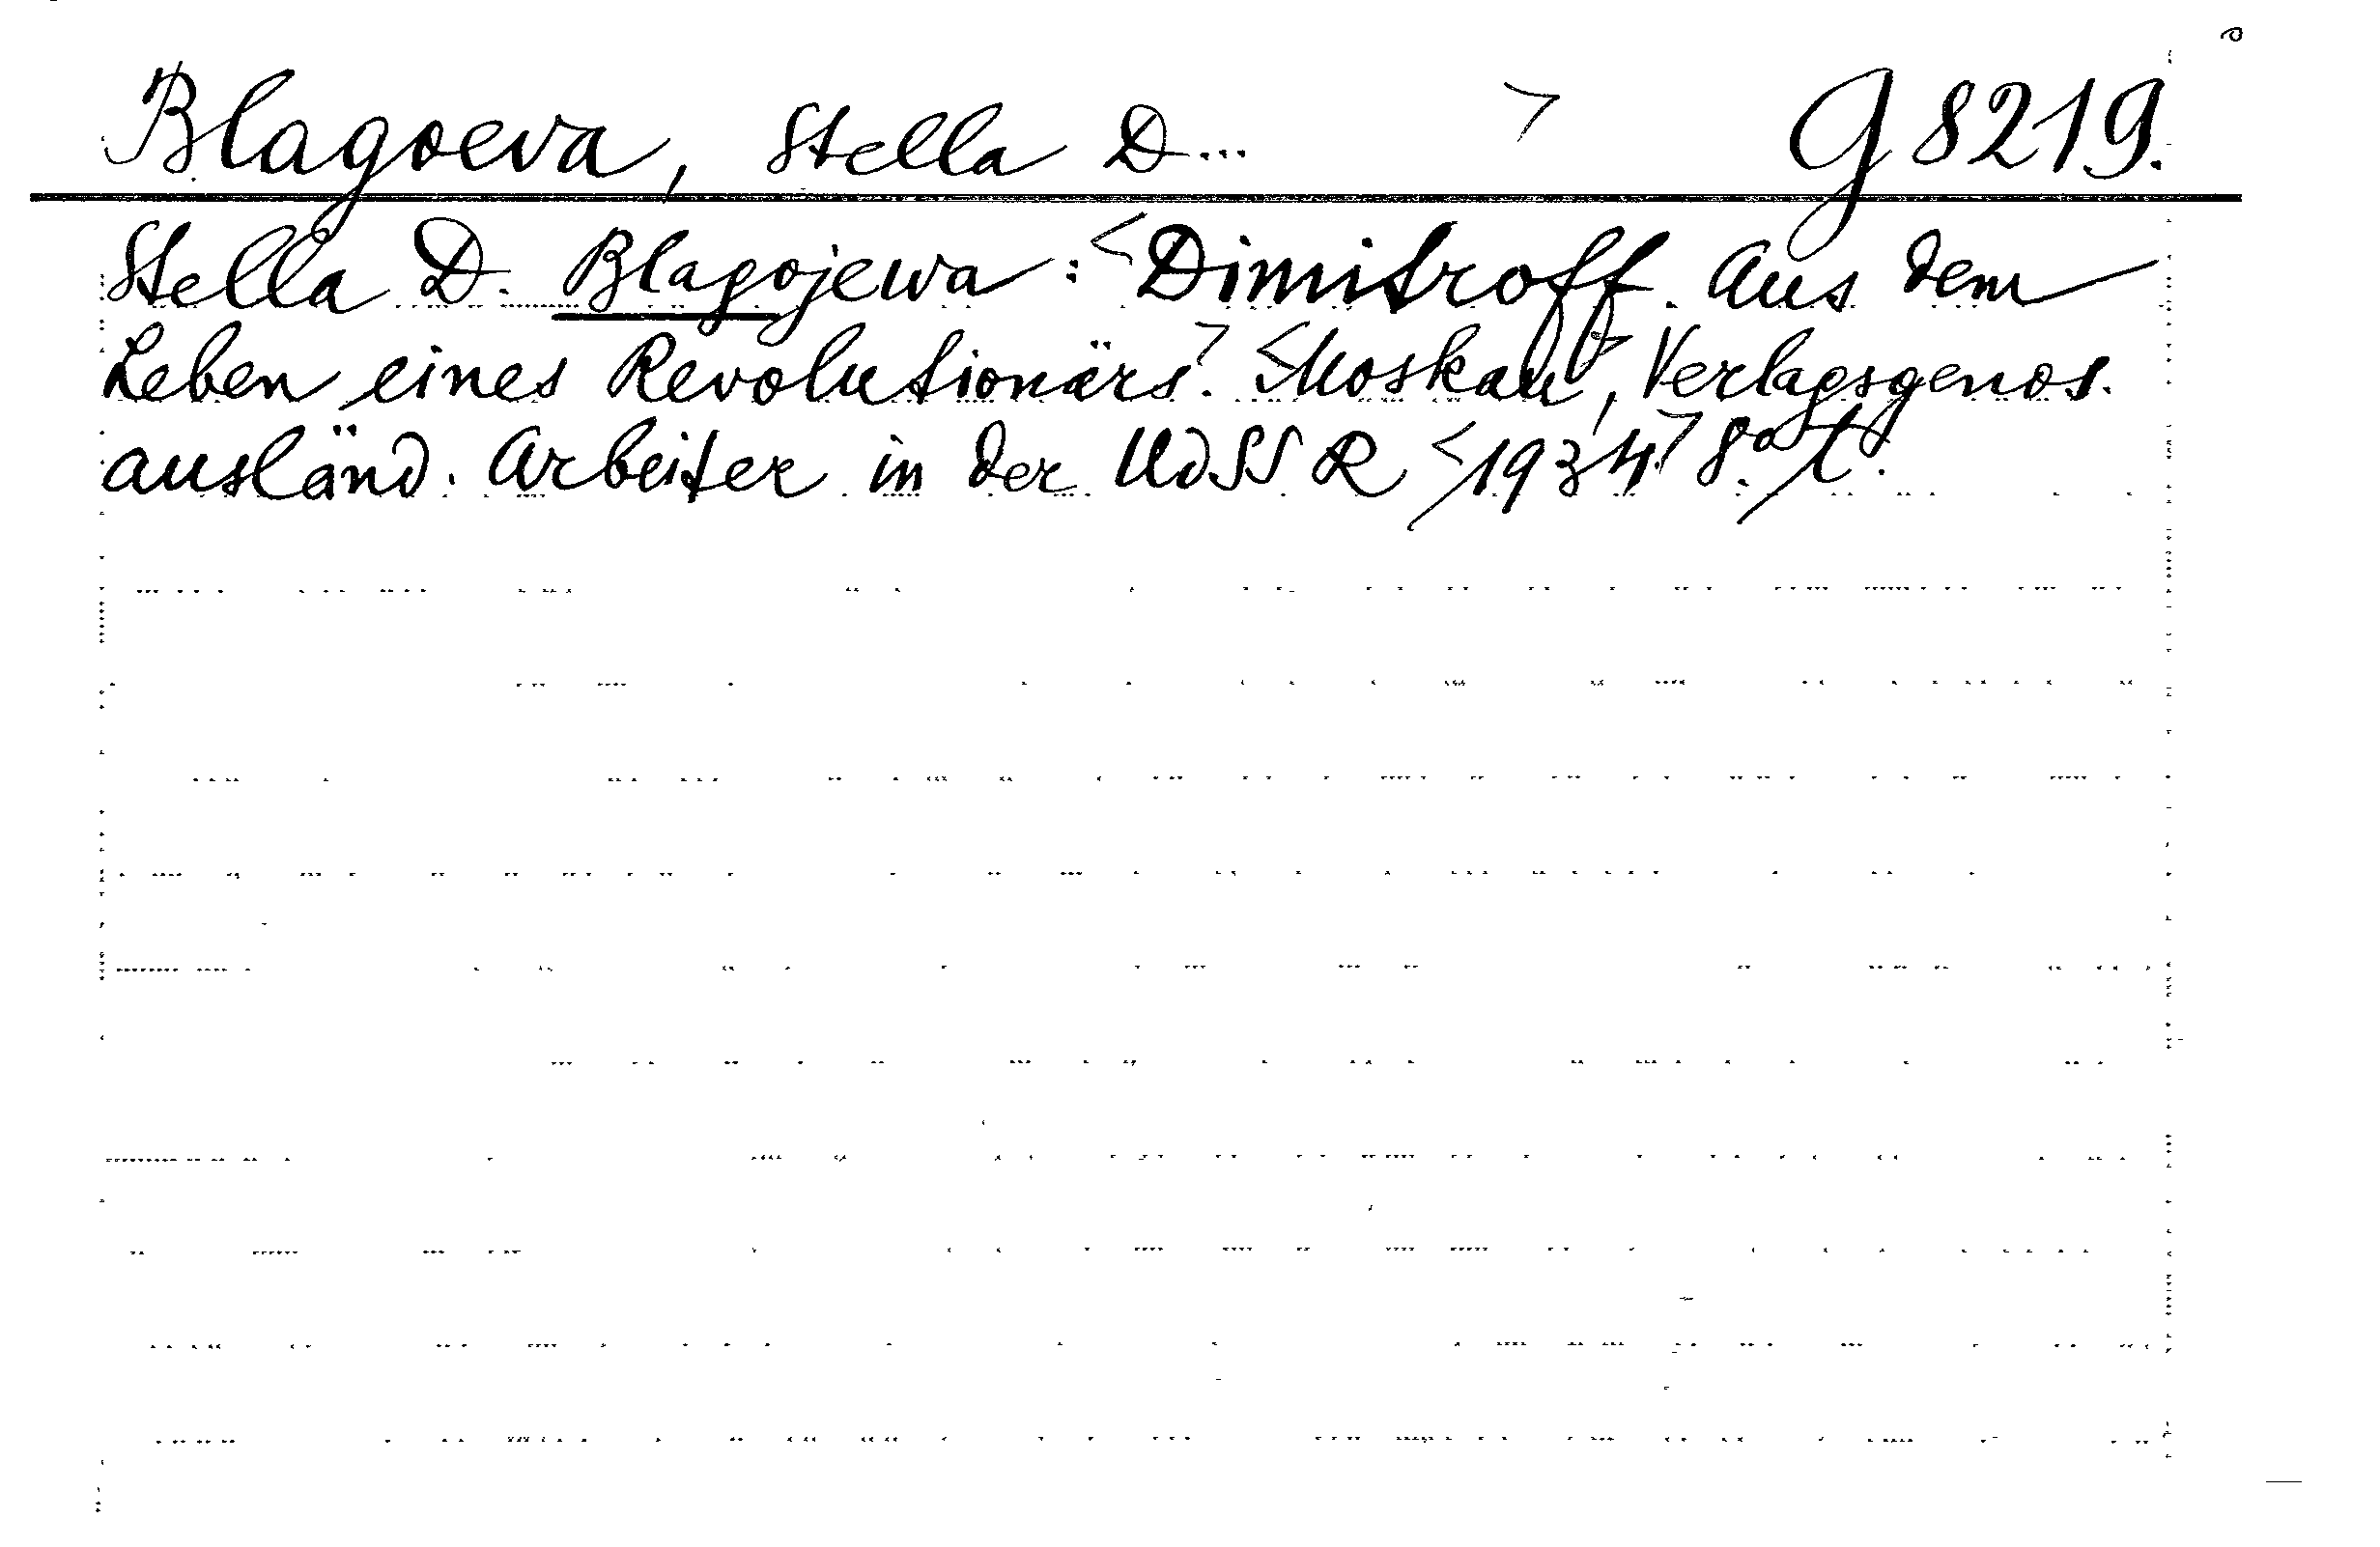 Blagoeva, Stella D... > G 8219.
Stella D. Blagojewa: <Dimitroff. Aus dem
Leben eines Revolutionärs.> <Moskau>, Verlagsgenos.
ausländ. Arbeiter in der UdSSR <1934> 8°